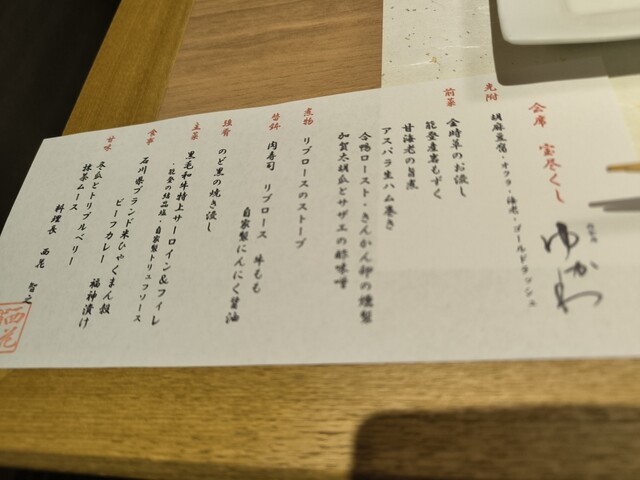 会席 宝尽くし
ゆかわ
先附
胡麻豆腐・オクラ・海老・ゴールドラッシュ
前菜
金時草のお浸し
能登産岩もずく
甘海老の旨煮
アスパラ生ハム巻き
合鴨ロースト・きんかん卵の燻製
加賀太胡瓜とサザエの酢味噌
煮物
リブロースのストーブ
替鉢
肉寿司 リブロース 牛もも
自家製にんにく醤油
強肴
のど黒の焼き浸し
主菜
黒毛和牛特上サーロイン&フィレ
・能登の結晶塩・自家製トリュフソース
食事
石川県ブランド米ひゃくまん穀
ビーフカレー 福神漬け
甘味
冬瓜とトリプルベリー
抹茶ムース
料理長 西尾 智之